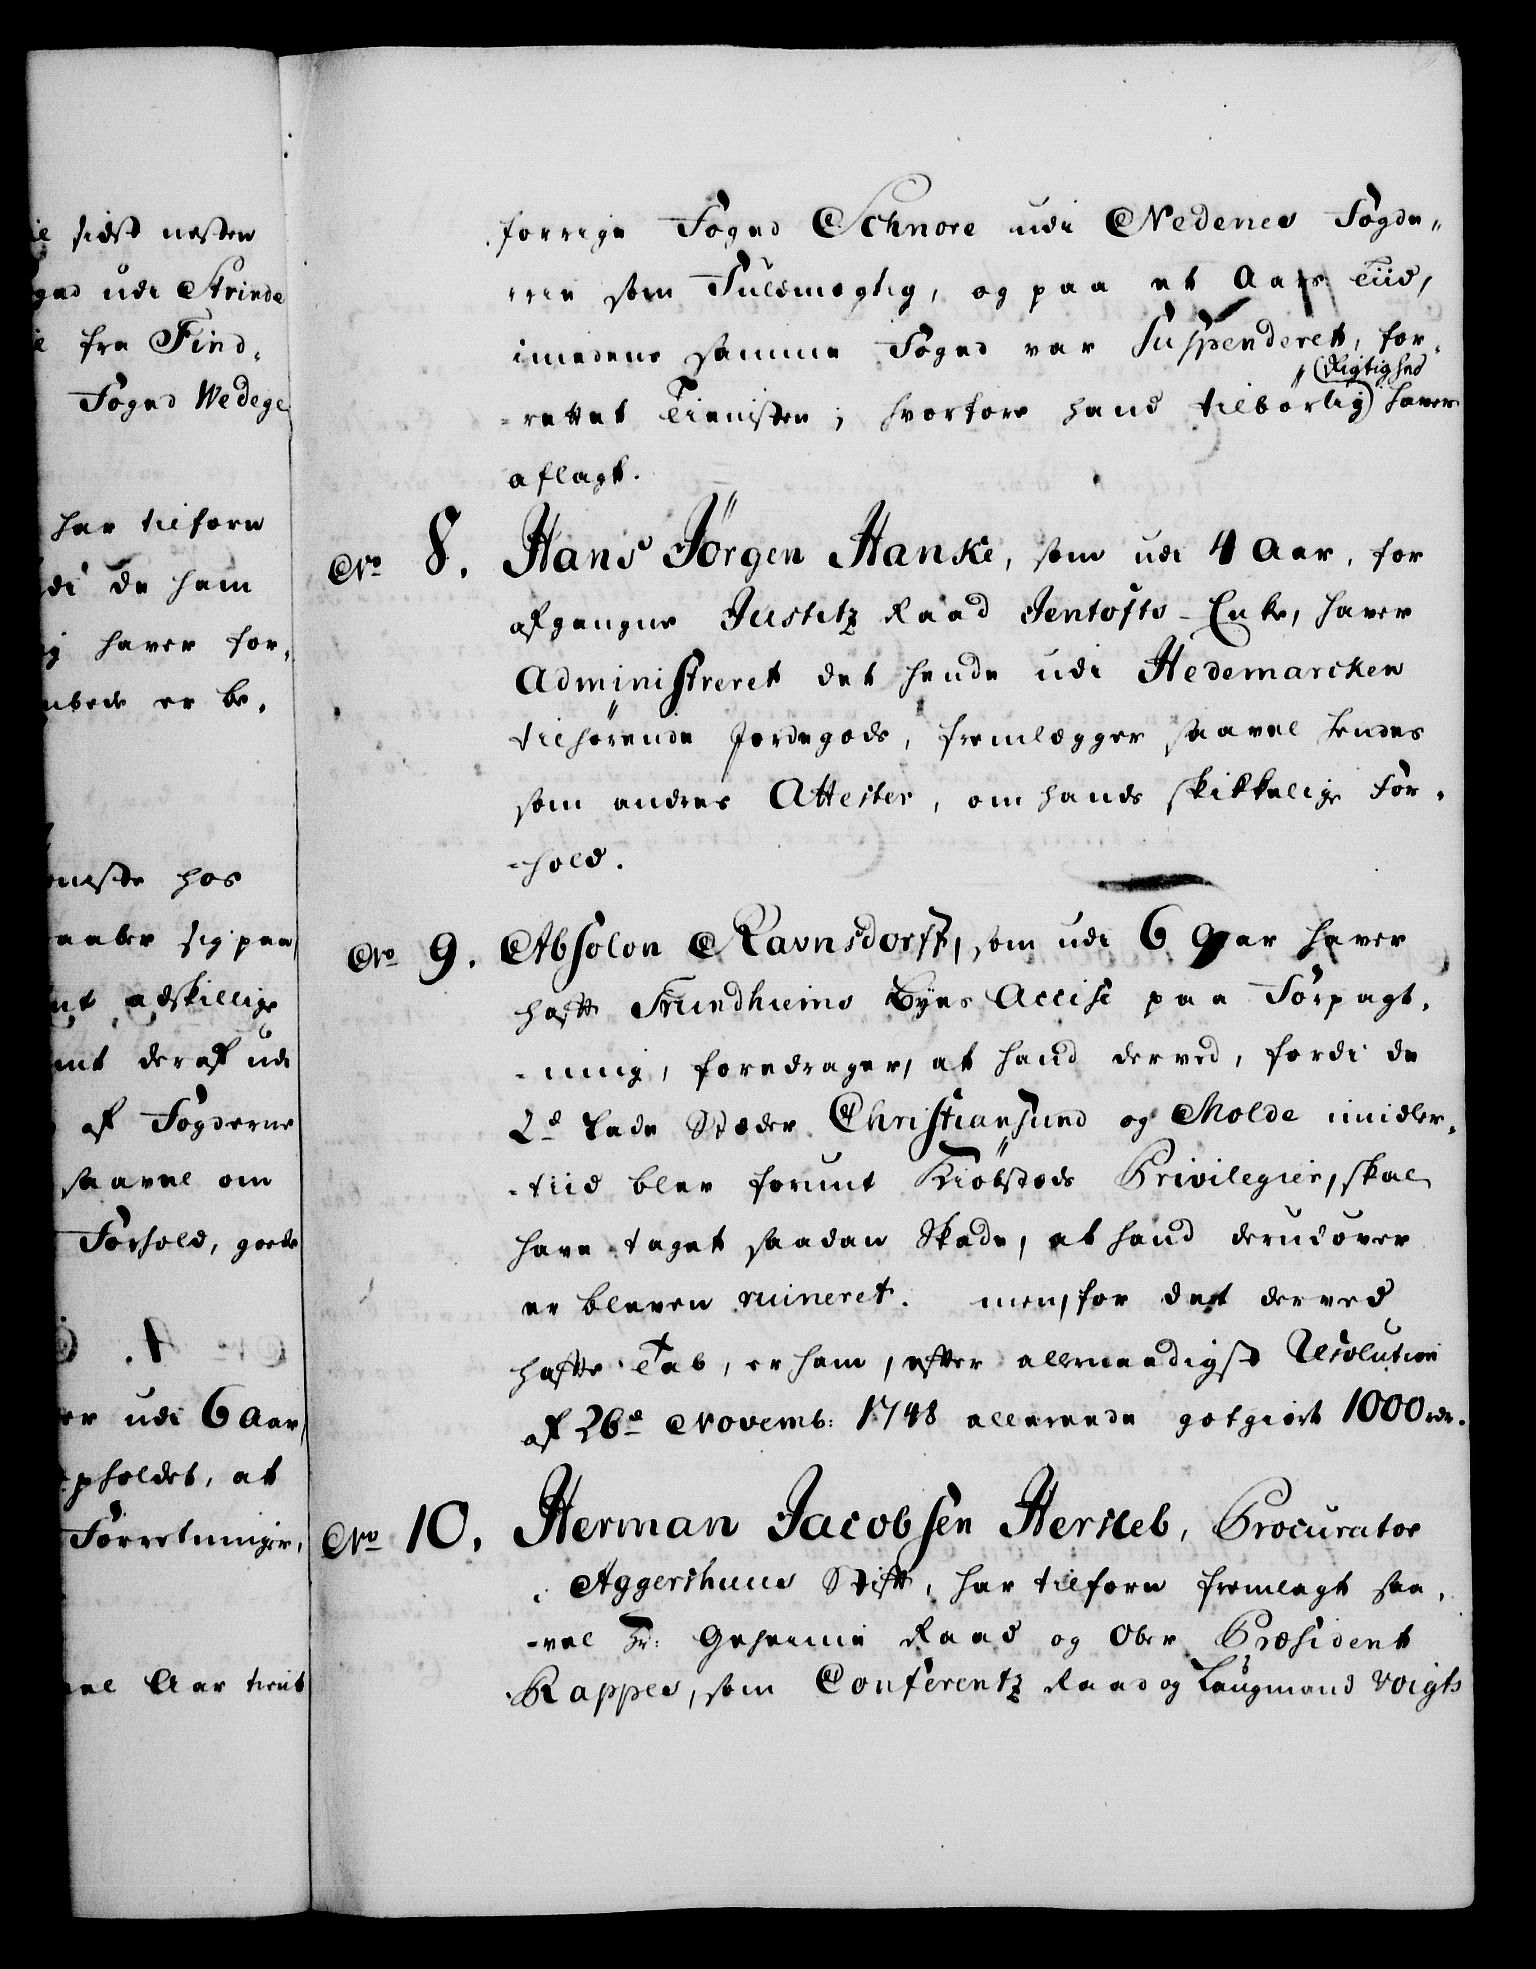 il sidst nesten
ged udi Strinde
fra Find-
Foged Wedege
har tilforn
di de ham
haver for-
er be-
hos
raaber sig paa,
adskillige
mt deraf udi
af Fogderne
saavel om
Forhold, gode
er udi 6 Aar,
pholdet, at
Forretninger,
Aar tient
forrige Foged Schnore udi Nedenes Fogde-
rie som Fuldmegtig, og paa et Aars Tiid,
imedens samme Foged var Suspenderet, for-
Rigtighed
-rettet Tienisten; hvorfore hand tilbørlig haver
aflagt.
No 8. Hans Jörgen Hanke, som udi 4 Aar, for
afgangne Justitz Raad Jentofts Enke, haver
Administreret det hende udi Hedemarcken
tilhørende Jordegods, fremlægger saavel hendes
som andres Attester, om hands skikkelige For-
-hold.
No 9. Absolon Ravnsdorff, som udi 6 Aar haver
hafft Trundhiems Byes Accise paa Forpagt-
-ning, foredrager, at hand derved, fordi de
2de Lade Stæder Christiansund og Molde imidler-
-tiid blev forunt Kiøbstæds Privilegier, skal
have taget saadan Skade, at hand derudover
er bleven ruineret. men, for det derved
hafte Tab, er ham, efter allernaadigst Resolution
af 26de Novemb: 1748 allerede gotgiort 1000 rdr.
No 10. Herman Jacobsen Hersleb, Procurator
i Aggershuus Stift, har tilforn fremlagt saa-
-vel Hr: Geheime Raad og Ober Præsident
Rappes, som Conferentz Raad og Laugmand Voigts